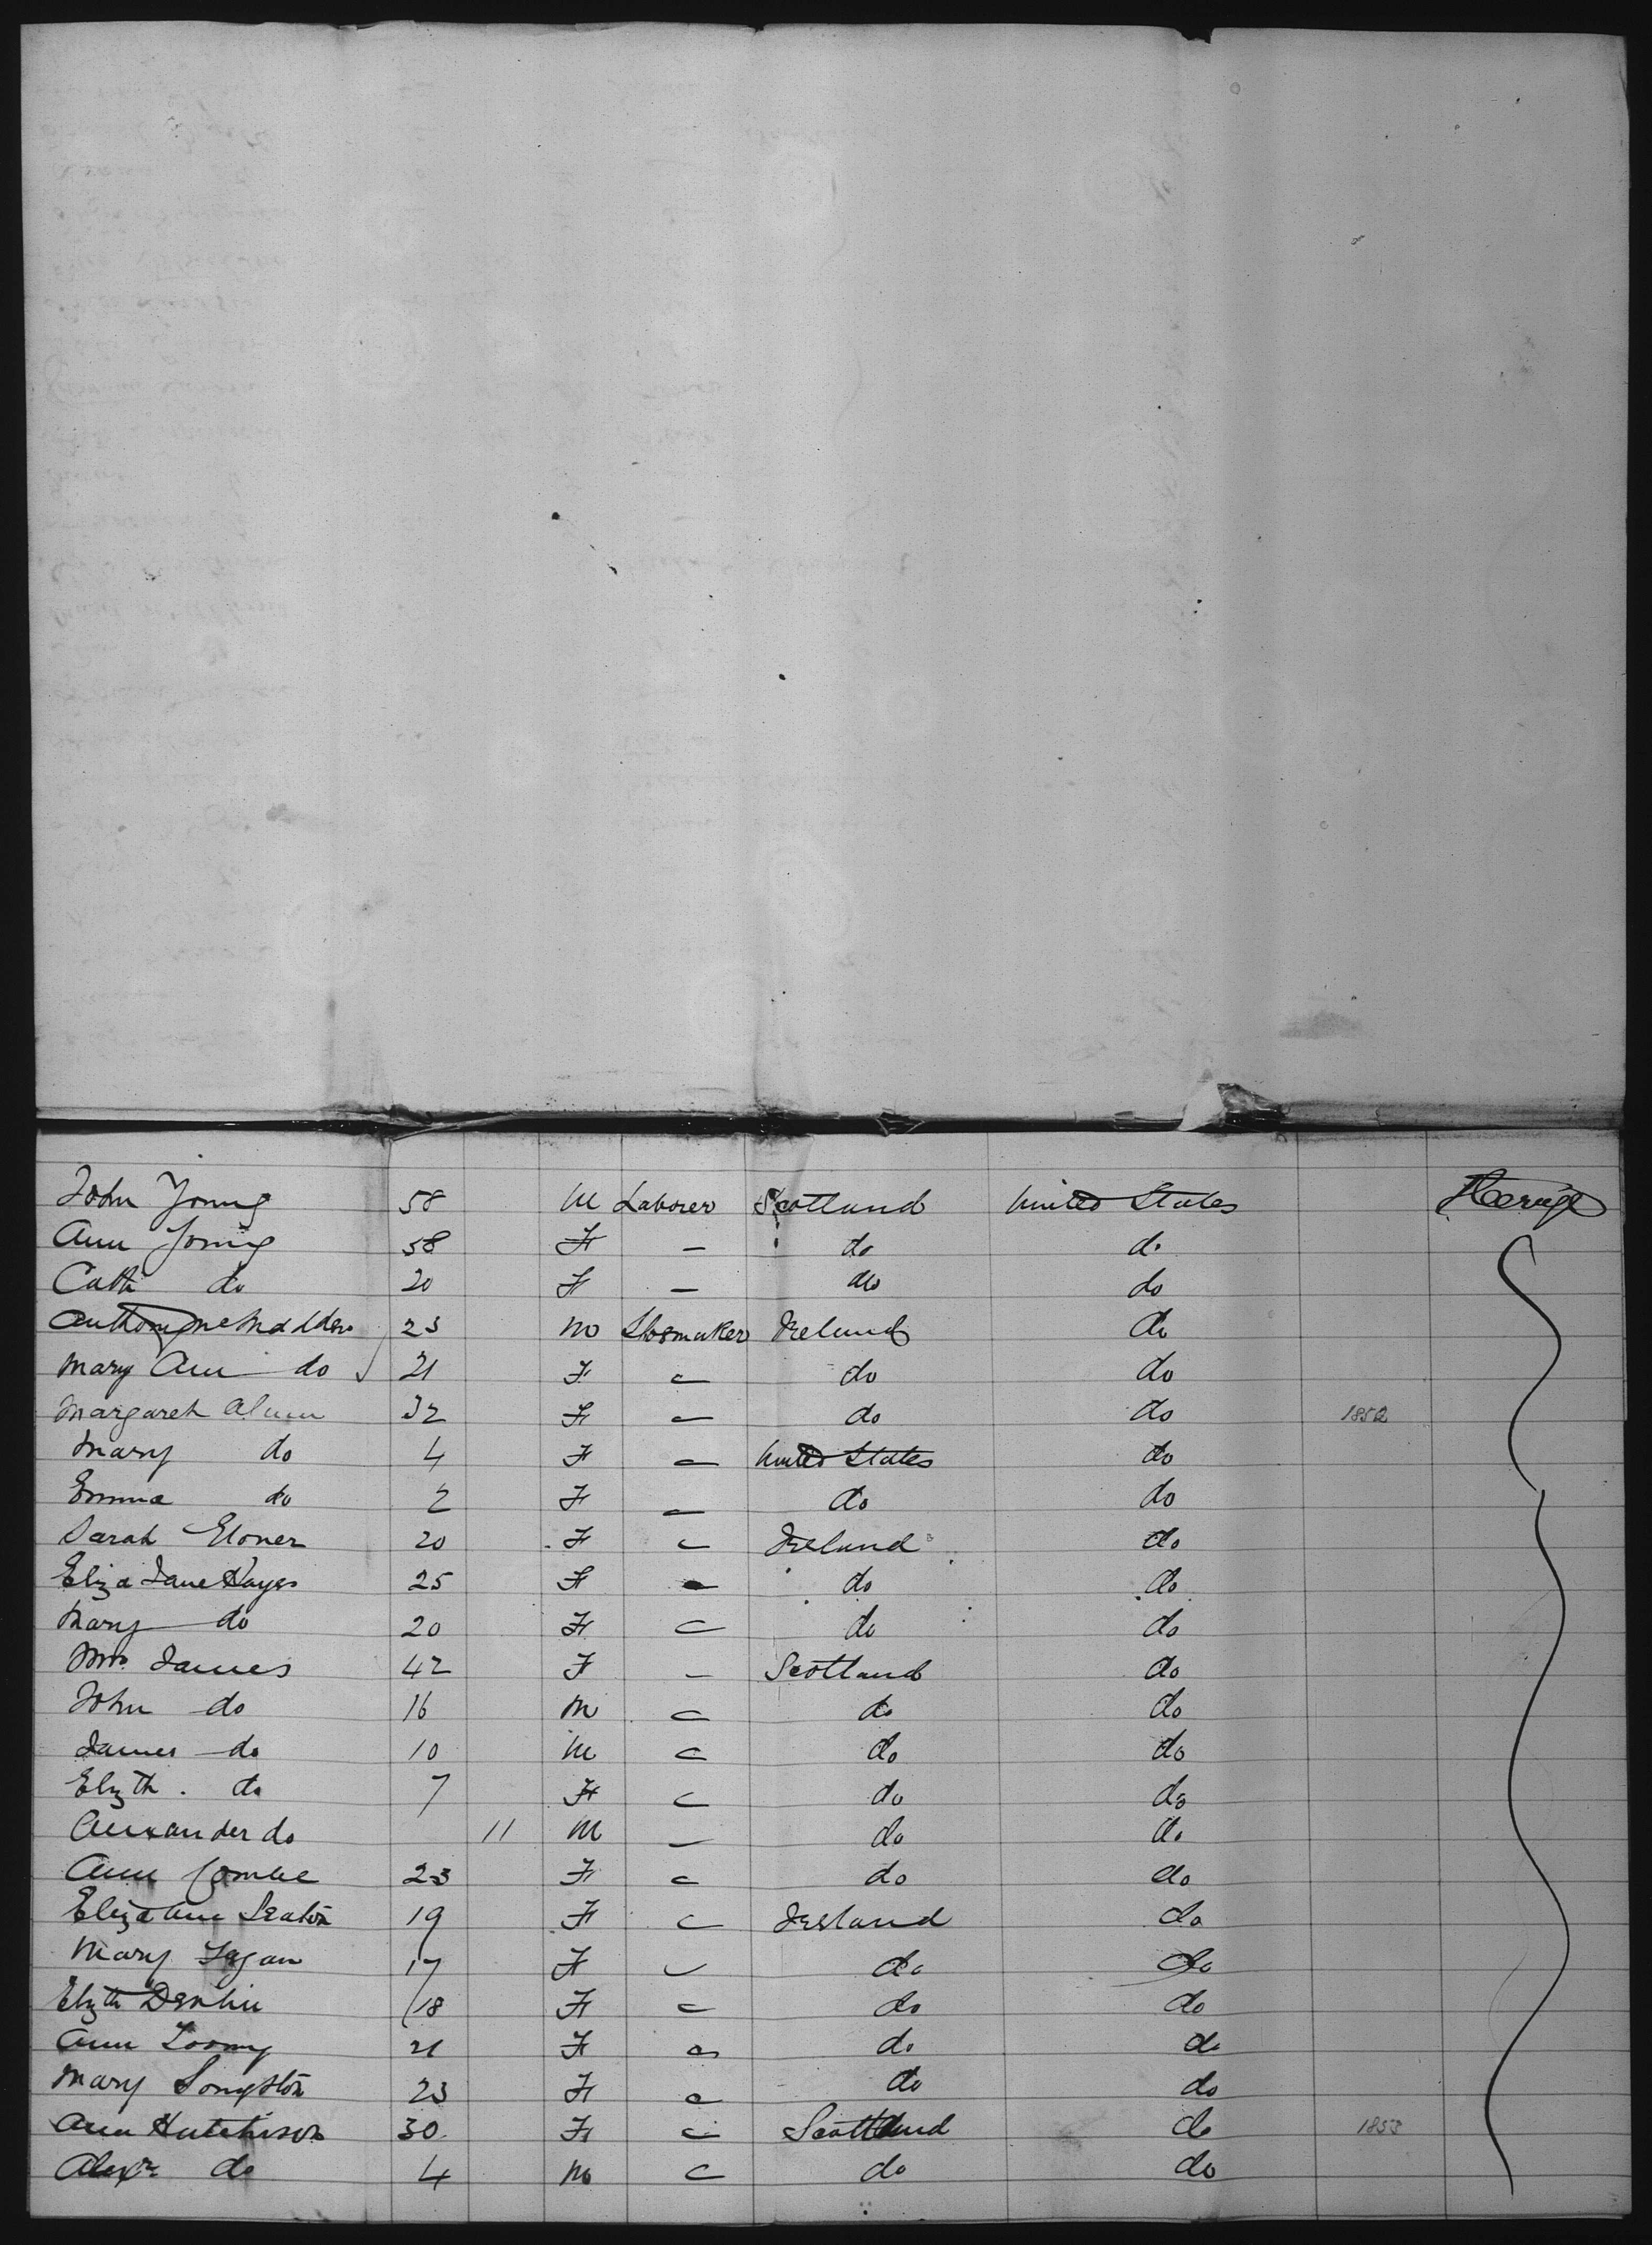 John Young 58 M Laborer Scotland United States Steerage
Ann Young 58 F - do do
Cath do 20 F - do do
Anthony McMadden 23 M Shoemaker Ireland do
Mary Ann do 21 F - do do
Margaret 32 F - do do 1852
Mary do 4 F - United States do
Emma do 2 F - do do
Sarah 20 F - Ireland do
Eliza Jane Hayes 25 F - do do
Mary do 20 F - do do
Mrs. James 42 F - Scotland do
John do 16 M - do do
James do 10 M - do do
Elizth. do 7 F - do do
Alexander do 11 M - do do
Ann Combe 23 F - do do
Eliza Ann Seaton 19 F - Ireland do
Mary Fagan 17 F - do do
Elizth Devlin 18 F - do do
Ann Toomy 21 F - do do
Mary Songston 23 F - do do
Ann Hutchison 30 F - Scotland do 1853
Alexr do 4 M - do do